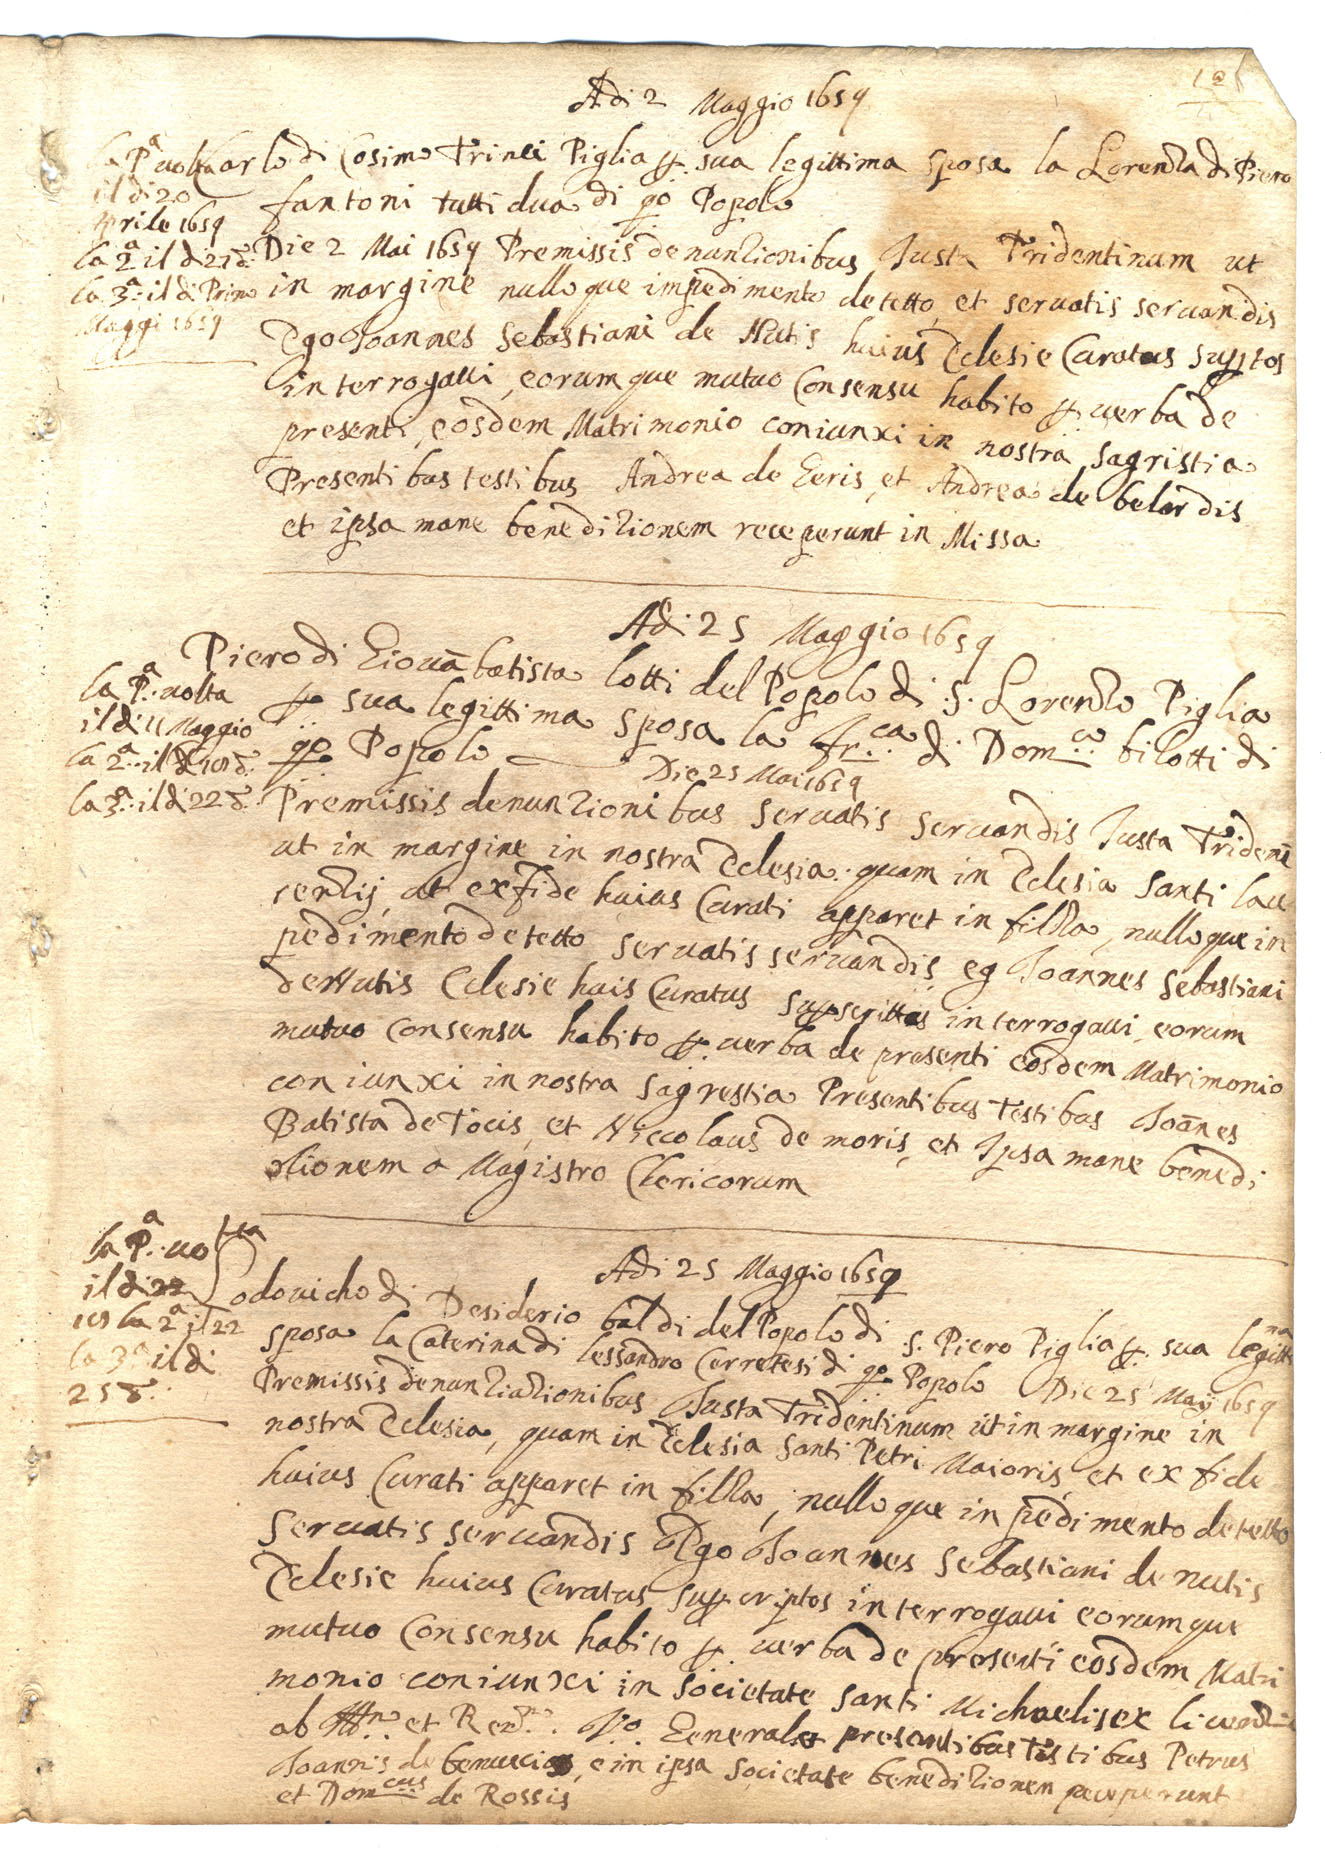 Adi 2 Maggio 1659
la Pa. uolta
il di 20
Aprile 1659
la 2a il di 27 d.
la 3a: il di Primo
Maggi 1659
Carlo di Cosimo Trinci Piglia p. sua legittima sposa la Lorenza di Piero
fantoni tutti dua di qo Popolo
Die 2 Mai 1659 Premissis denunzionibus Justa Tridentinum ut
in margine nulloque impedimento detetto, et seruatis seruandis
Ego Joannes Sebastiani de Nutis huius Eclesie Curatus
interrogaui, eorumque mutuo Consensu habito p. uerba de
presenti, eosdem Matrimonio coniunxi in nostra sagristia
Presentibus testibus Andrea de Geris, et Andrea de belardis
et ipsa mane benedizionem receperunt in Missa
Adi 25 Maggio 1659
la Pa. uolta
il di 11 Maggio
la 2a. il di 18 d.
la 3a. il di 22 d.
Piero di Giouā batista lotti del Popolo di S. Lorenzo Piglia
p sua legittima sposa la Fr.ca di Dom.ca bilotti di
qo Popolo
Die 25 Mai 1659
Premissis denunzionibus seruatis seruandis Justa Tridenē
ut in margine in nostra Eclesia. quam in Eclesia santi lau
renzij, ut ex fide huius Curati apparet in filza, nulloque in
pedimento detetto seruatis seruandis, eg Joannes Sebastiani
de Nutis Eclesie huis Curatus supscrittos interrogaui, eorum
mutuo consensu habito p. uerba de presenti eosdem Matrimonio
coniunxi in nostra sagrestia Presentibus Testibus Joānes
Batista de Tocis, et Niccolaus de moris, et Ipsa mane benedi
zionem a Magistro Clericorum
Adi 25 Maggio 1659
la Pa. uolta
il di 22
la 2a il 22
la 3a il di
25 d.
Lodouicho di Desiderio baldi del Popolo di S. Piero Piglia p. sua legitt.ma
sposa la Caterina di lessandro Cerretesi di qo Popolo Die 25 Maij 1659
Premissis denunziazionibus Justa Tridentinum ut in margine in
nostra Eclesia, quam in Eclesia Santi Petri Maioris, et ex fide
huius Curati apparet in filza, nulloque inpedimento detetto
Seruatis seruandis Ego Joannes Sebastiani de nutis
Eclesie huius Curatus supcriptos interrogaui eorumque
mutuo Consensu habito p. uerba de presenti eosdem Matri
monio coniunxi in Societate Santi Michaelis ex licenzia
ab et Reu. Generale presentibus Testibus Petrus
Joannis de benucci, e in ipsa Societate benedizionem
et Dom.cus de Rossis